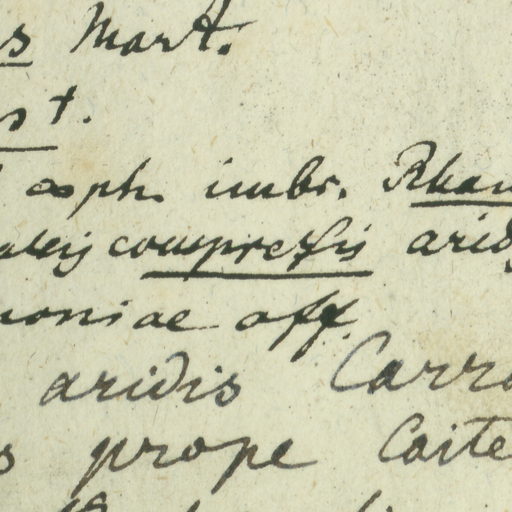 s Mart.
st.
asph. imbr. Rham
compressis arid
moniae off.
aridis Carra
s prope Caite